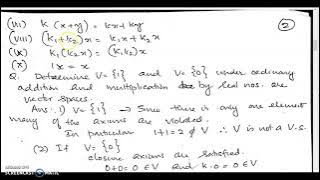 (VII) k (x+y) = kx+ky
(VIII) (k₁+k₂)x = k₁x+k₂x
(IX) k₁(k₂x) = (k₁k₂)x
(X) 1x = x
Q. Determine V={1} and V={0} under ordinary
addition and multiplication by real nos. are
vector spaces.
Ans: 1) V={1} → Since there is only one element
many of the axioms are violated.
In particular 1+1=2∉V ∴ V is not a V.S.
(2) If V={0}
closure axioms are satisfied.
0+0=0∈V and k·0=0∈V
2